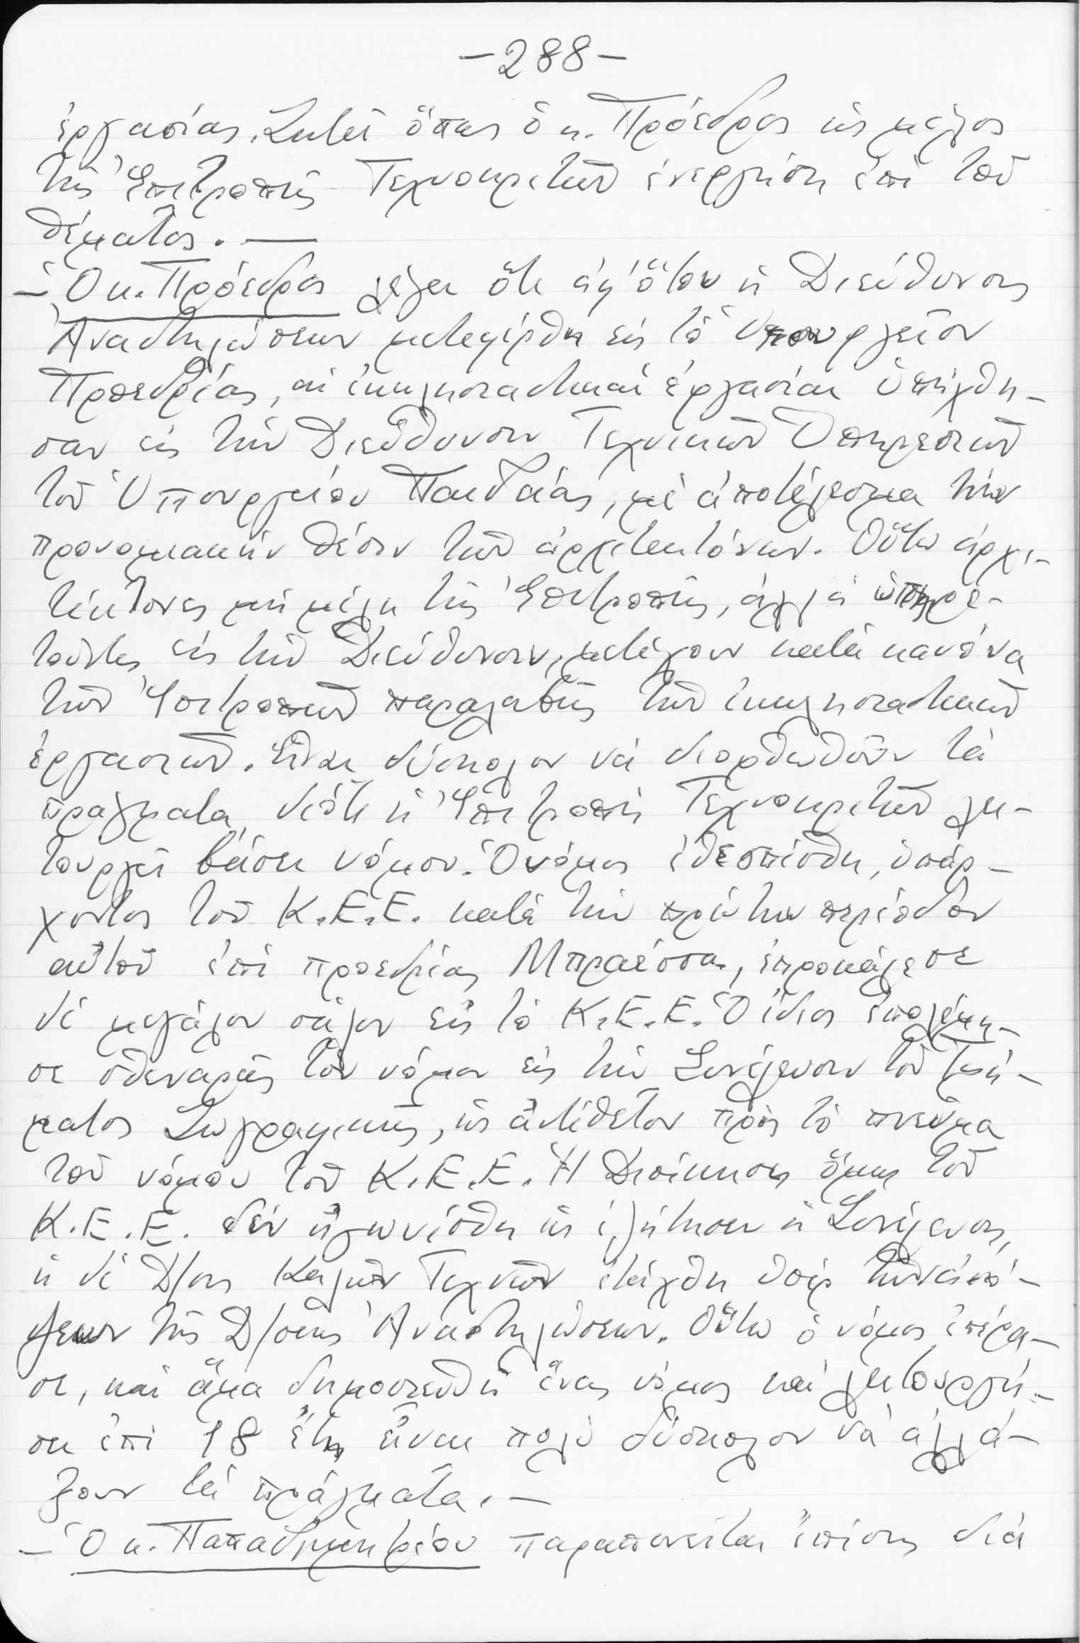 -288-
ἐργασίας. Ζητεῖ ὅπως ὁ κ. Πρόεδρος ὡς μέλος
τῆς Ἐπιτροπῆς Τεχνοκριτῶν ἐνεργήση ἐπί τοῦ
θέματος. —
- Ὁ κ. Πρόεδρος λέγει ὅτι ἀφ' ὅτου ἡ Διεύθυνσις
Ἀναστηλώσεων μετεφέρθη εἰς τό Ὑπουργεῖον
Προεδρίας, αἱ ἐκκλησιαστικαί ἐργασίαι ὑπήχθη-
σαν εἰς τήν Διεύθυνσιν Τεχνικῶν Ὑπηρεσιῶν
τοῦ Ὑπουργείου Παιδείας, μέ ἀποτέλεσμα τήν
προνομιακήν θέσιν τῶν ἀρχιτεκτόνων. Οὕτω ἀρχι-
τέκτονες μή μέλη τῆς Ἐπιτροπῆς, ἀλλά ὑπηρε-
τοῦντες εἰς τήν Διεύθυνσιν, μετέχουν κατά κανόνα
τῶν Ἐπιτροπῶν παραλαβῆς τῶν ἐκκλησιαστικῶν
ἐργασιῶν. Εἶναι δύσκολον νά διορθωθοῦν τά
πράγματα, διότι ἡ Ἐπιτροπή Τεχνοκριτῶν λει-
τουργεῖ βάσει νόμου. Ὁ νόμος ἐθεσπίσθη, ὑπάρ-
χοντος τοῦ Κ.Ε.Ε. κατά τήν πρώτην περίοδον
αὐτοῦ ἐπί προεδρίας Μπραέσσα, ἐπροκάλεσε
δέ μεγάλον σάλον εἰς τό Κ.Ε.Ε. Ὁ ἴδιος ἐπολέμη-
σε σθεναρῶς τόν νόμον εἰς τήν Συνέλευσιν τοῦ Τμή-
ματος Ζωγραφικῆς, ὡς ἀντίθετον πρός τό πνεῦμα
τοῦ νόμου τοῦ Κ.Ε.Ε. Ἡ Διοίκησις ὅμως τοῦ
Κ.Ε.Ε. δέν ἠγωνίσθη ὡς ἐζήτησεν ἡ Συνέλευσις,
ἡ δέ Δ/σις Καλῶν Τεχνῶν ἐτάχθη ὑπέρ τῶν ἀπό-
ψεων τῆς Δ/σεως Ἀναστηλώσεων. Οὕτω ὁ νόμος ἐπέρα-
σε, καί ἅμα δημοσιευθῆ ἕνας νόμος καί λειτουργή-
ση ἐπί 18 ἔτη, εἶναι πολύ δύσκολον νά ἀλλά-
ξουν τά πράγματα. —
- Ὁ κ. Παπαδημητρίου παραπονεῖται ἐπίσης διά